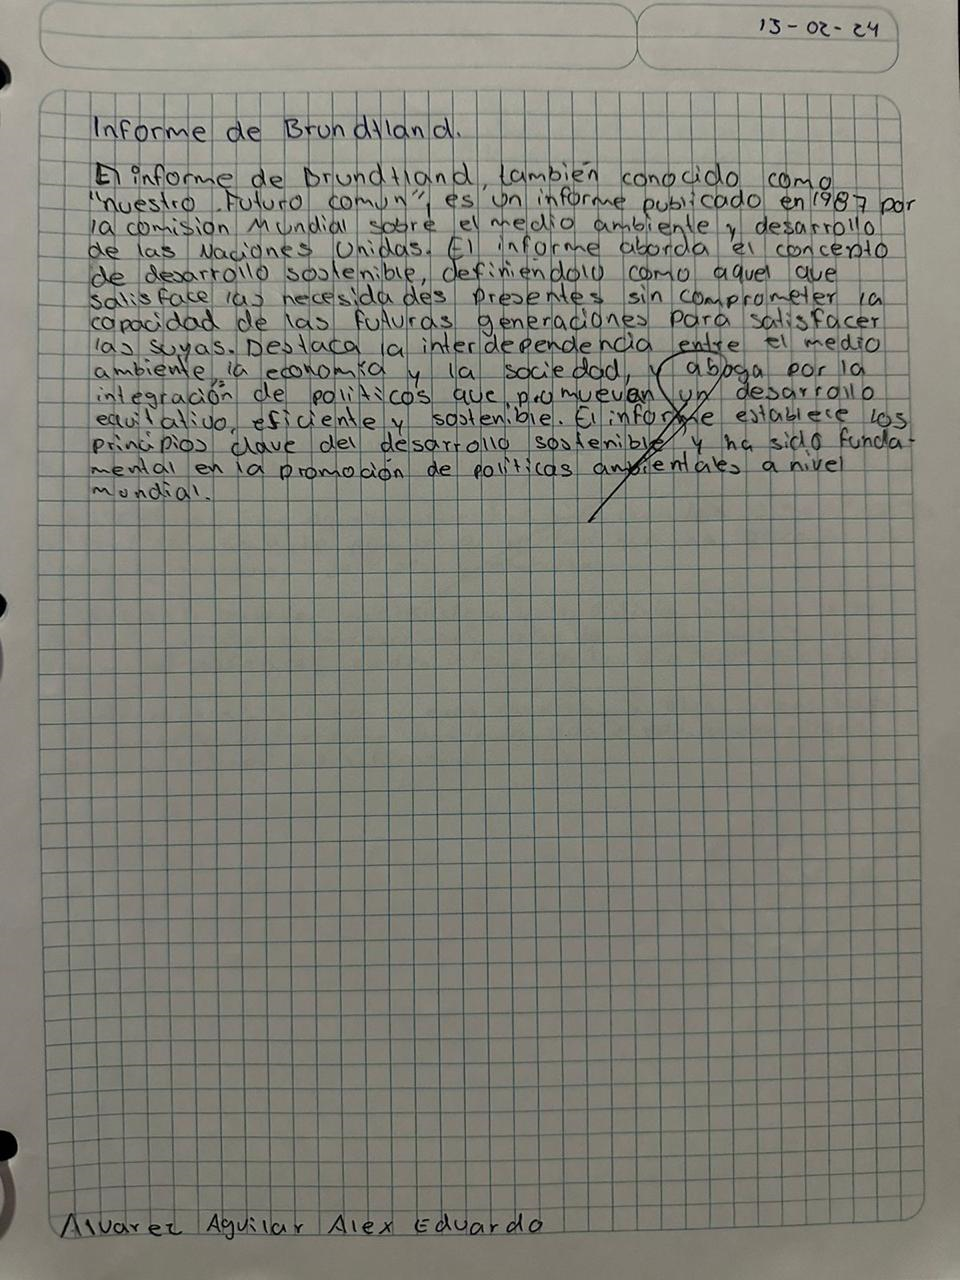 13-02-24
Informe de Brundtland.
El informe de Brundtland, también conocido como
"nuestro Futuro comun", es un informe publicado en 1987 por
la comision Mundial sobre el medio ambiente y desarrollo
de las Naciones Unidas. El informe aborda el concepto
de desarrollo sostenible, definiéndolo como aquel que
satisface las necesidades presentes sin comprometer la
capacidad de las futuras generaciones para satisfacer
las suyas. Destaca la interdependencia entre el medio
ambiente, la economía y la sociedad, y aboga por la
integración de políticos que promuevan un desarrollo
equitativo, eficiente y sostenible. El informe establece los
principios clave del desarrollo sostenible y ha sido funda-
mental en la promoción de políticas ambientales a nivel
mundial.
Alvarez Aguilar Alex Eduardo